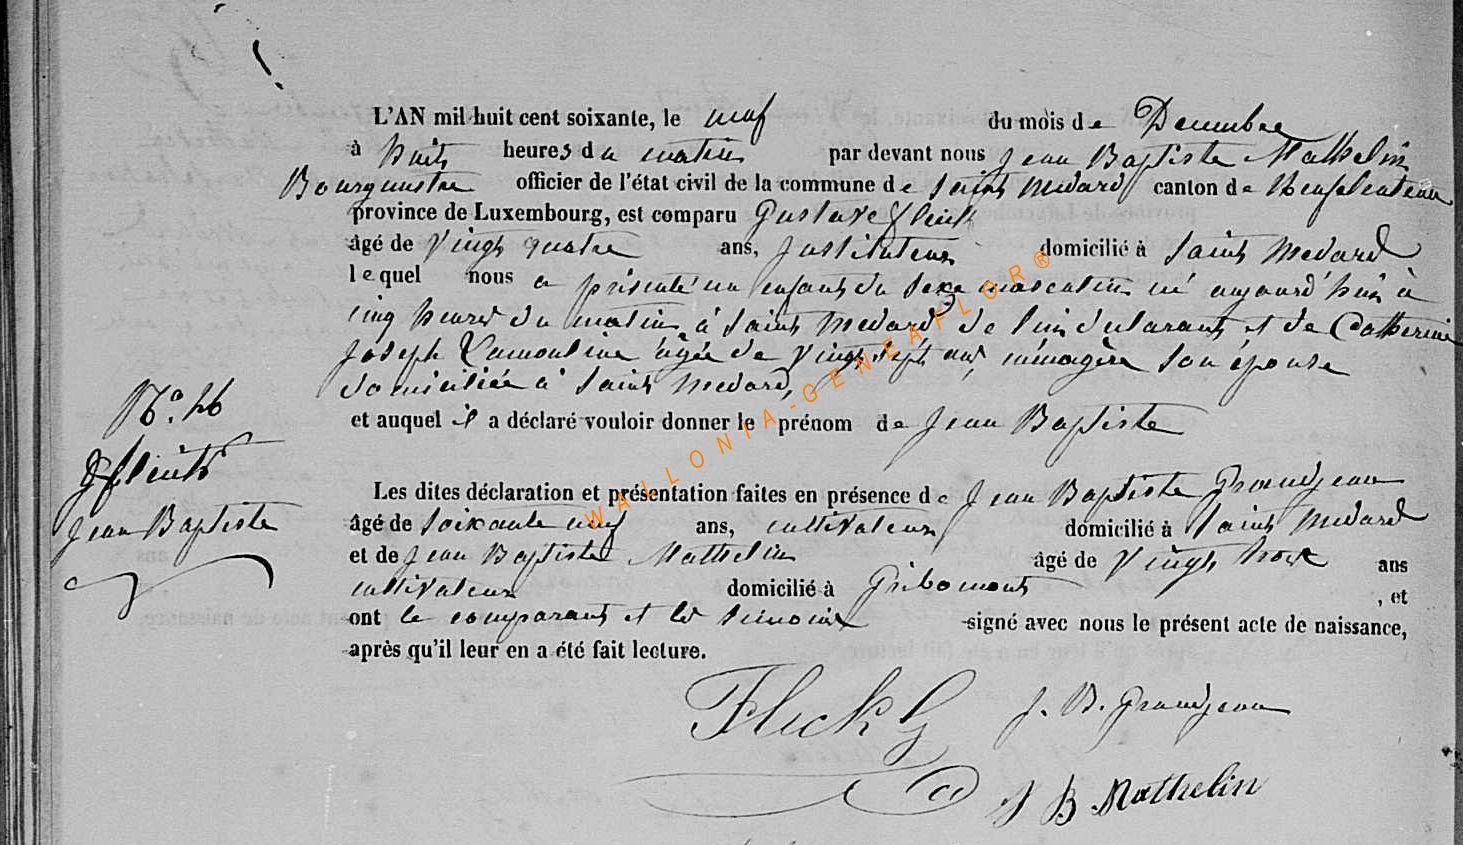 L'AN mil huit cent soixante, le neuf du mois de Decembre
à huit heures du matin par devant nous Jean Baptiste Mathelin
Bourgmestre officier de l'état civil de la commune de Saint Medard canton de Neufchateau
province de Luxembourg, est comparu Gustave
âgé de Vingt quatre ans, Instituteur domicilié à Saint Medard
lequel nous a présenté un enfant du sexe masculin né aujourd'hui à
cinq heures du matin à Saint Medard de lui déclarant et de Catherine
Joseph Lamouline âgée de Vingt sept ans, ménagère son épouse
domiciliée à Saint Medard,
et auquel il a déclaré vouloir donner le prénom de Jean Baptiste
Jean Baptiste
Les dites déclaration et présentation faites en présence de Jean Baptiste Grandjean
âgé de soixante neuf ans, cultivateur domicilié à Saint Medard
et de Jean Baptiste Mathelin âgé de Vingt trois ans
cultivateur domicilié à Gribomont , et
ont le comparant et les témoins signé avec nous le présent acte de naissance,
après qu'il leur en a été fait lecture.
Fleck G
J. B. Grandjean
J B Mathelin
WALLONIA-GENEAFLOR®